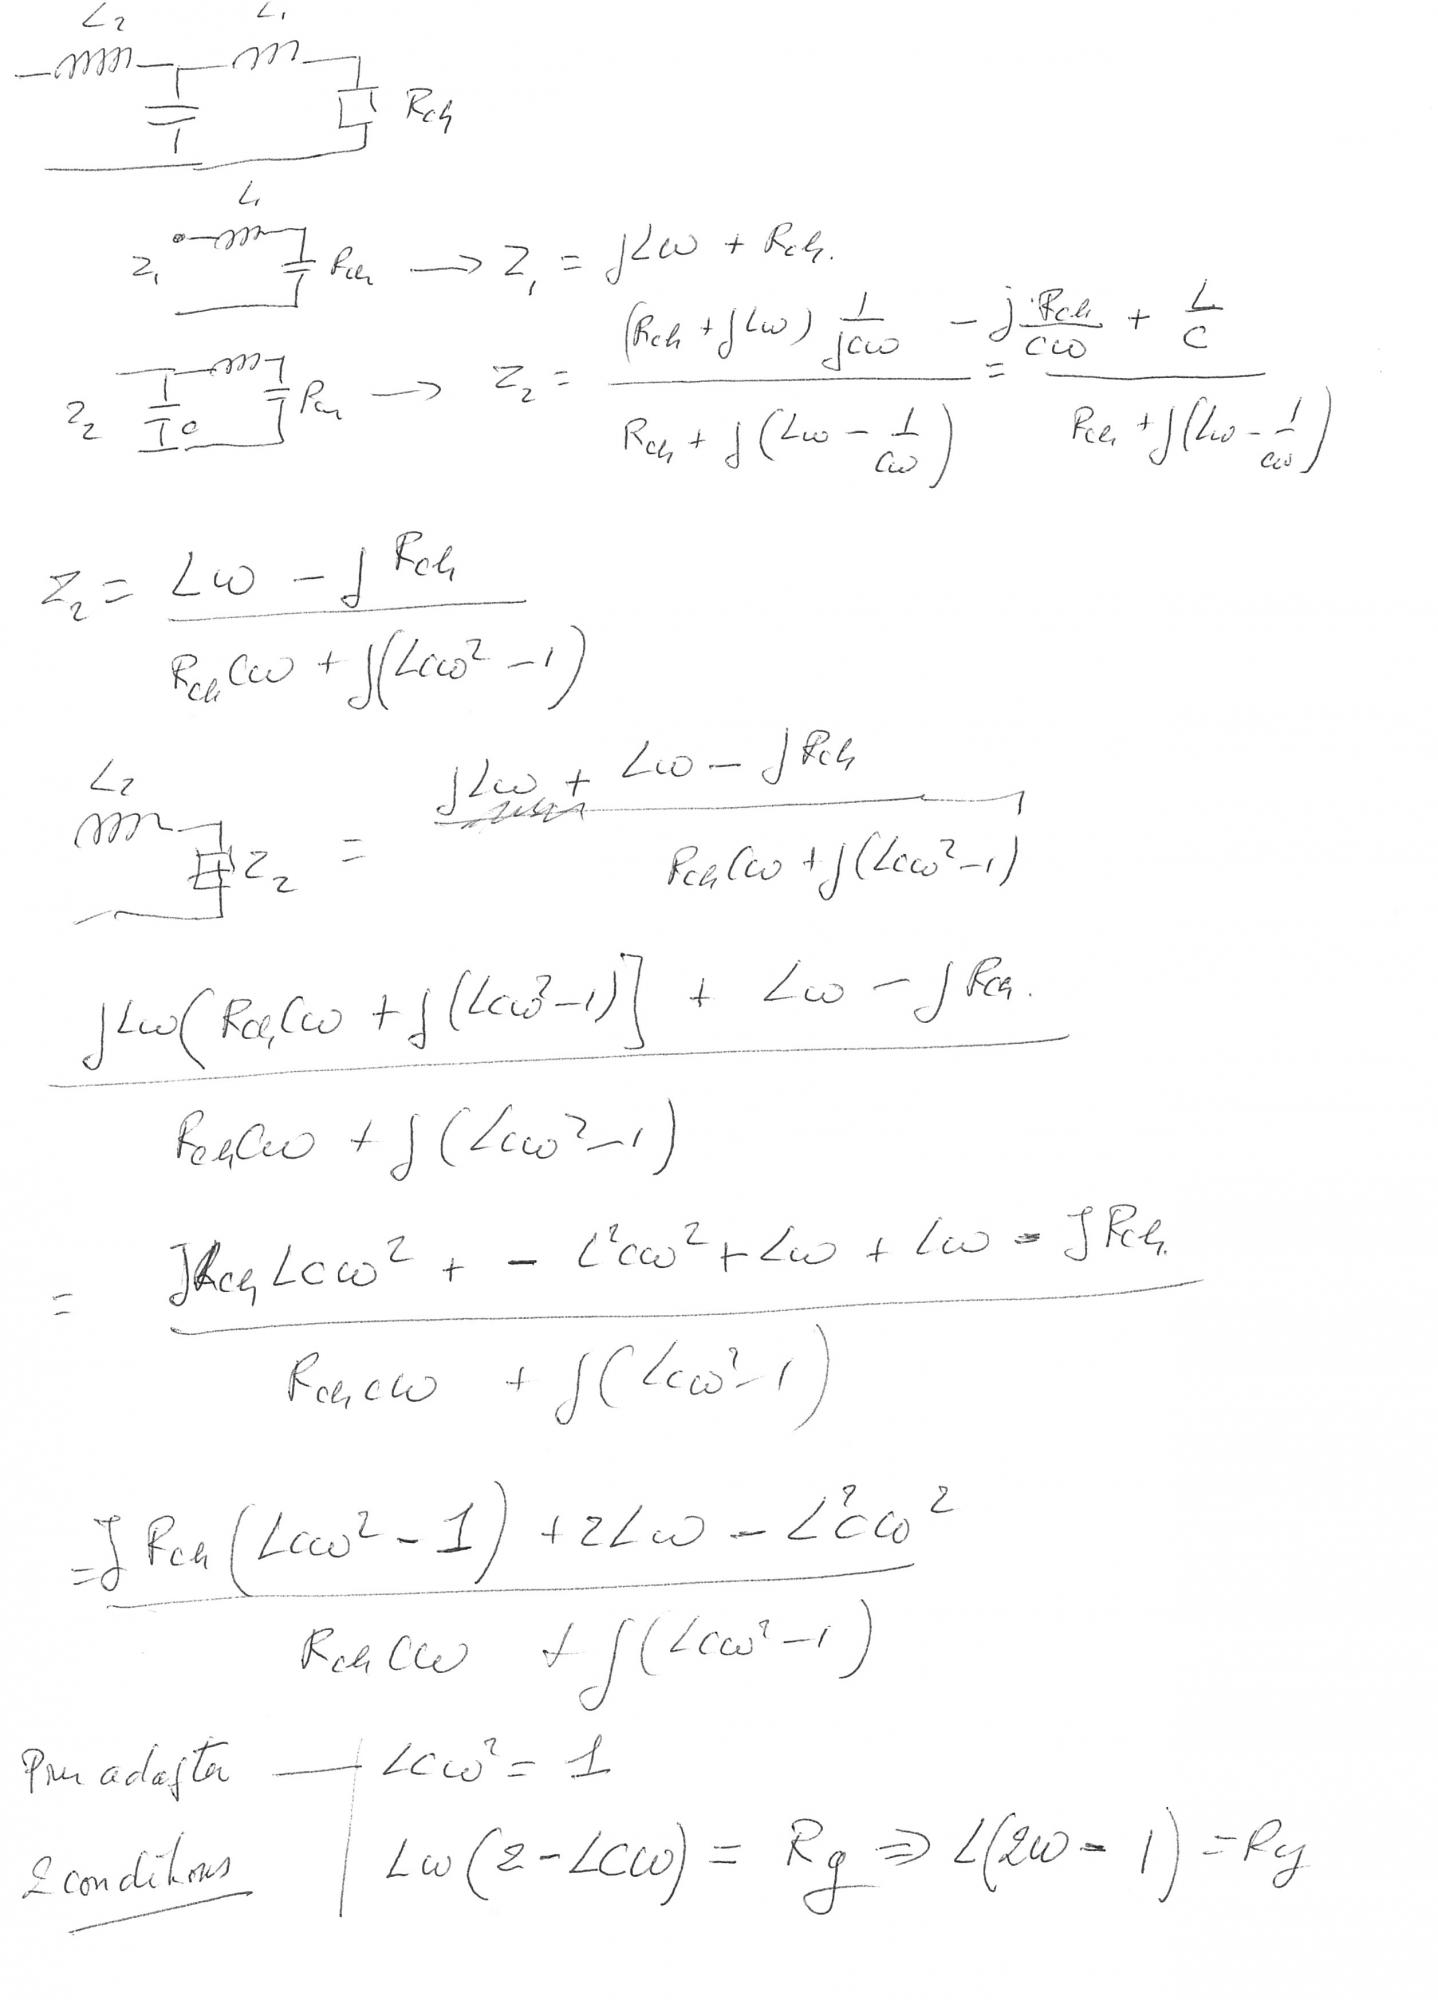 L₂ L₁
Rch
L₁
Z₁ Rch → Z₁ = jLω + Rch.
Z₂ C Rch → Z₂ = (Rch + jLω) 1/jCω / Rch + j(Lω - 1/Cω) = -j Rch/Cω + L/C / Rch + j(Lω - 1/Cω)
Z₂ = Lω - jRch / RchCω + j(LCω² - 1)
L₂
Z₂ = jLω + Lω - jRch / RchCω + j(LCω² - 1)
jLω(RchCω + j(LCω² - 1)] + Lω - jRch.
RchCω + j(LCω² - 1)
= jRchLCω² + - L²Cω² + Lω + Lω - jRch.
RchCω + j(LCω² - 1)
= jRch(LCω² - 1) + 2Lω - L²Cω²
RchCω + j(LCω² - 1)
LCω² = 1
2 conditions Lω(2 - LCω) = Rg ⇒ L(2ω - 1) = Rg